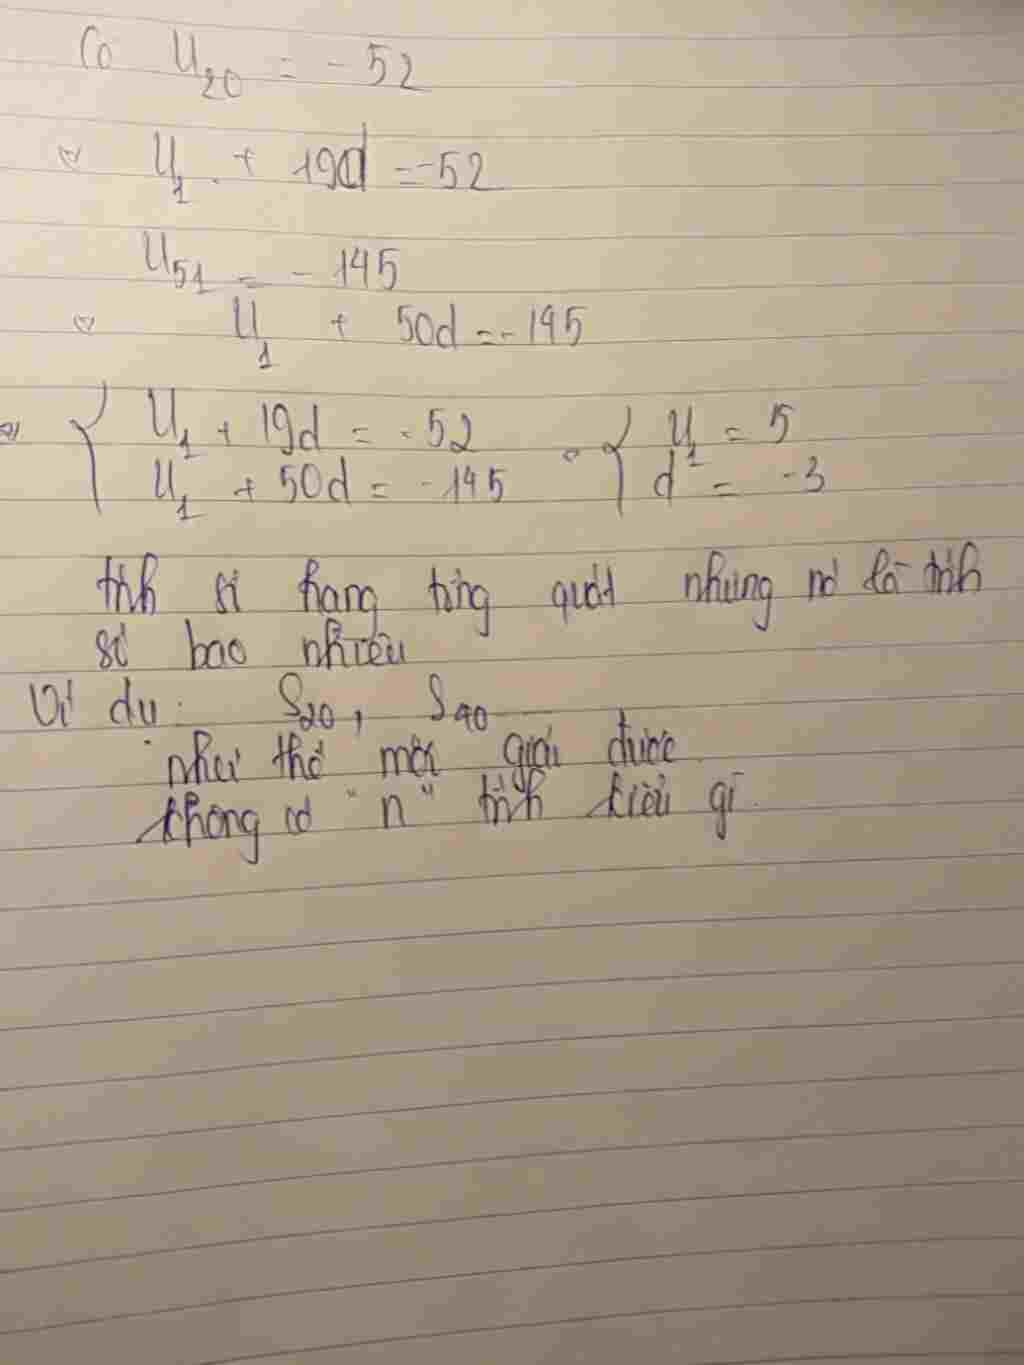 Có U₂₀ = - 52
⇔ U₁ + 19d = -52
U₅₁ = - 145
⇔ U₁ + 50d = - 145
⇔ { U₁ + 19d = - 52 ⇔ { U₁ = 5
U₁ + 50d = - 145 d = - 3
tính số hạng tổng quát nhưng nó là tính
số bao nhiêu
Ví dụ : S₂₀, S₄₀
như thế mới giải được
không có "n" tính kiểu gì.